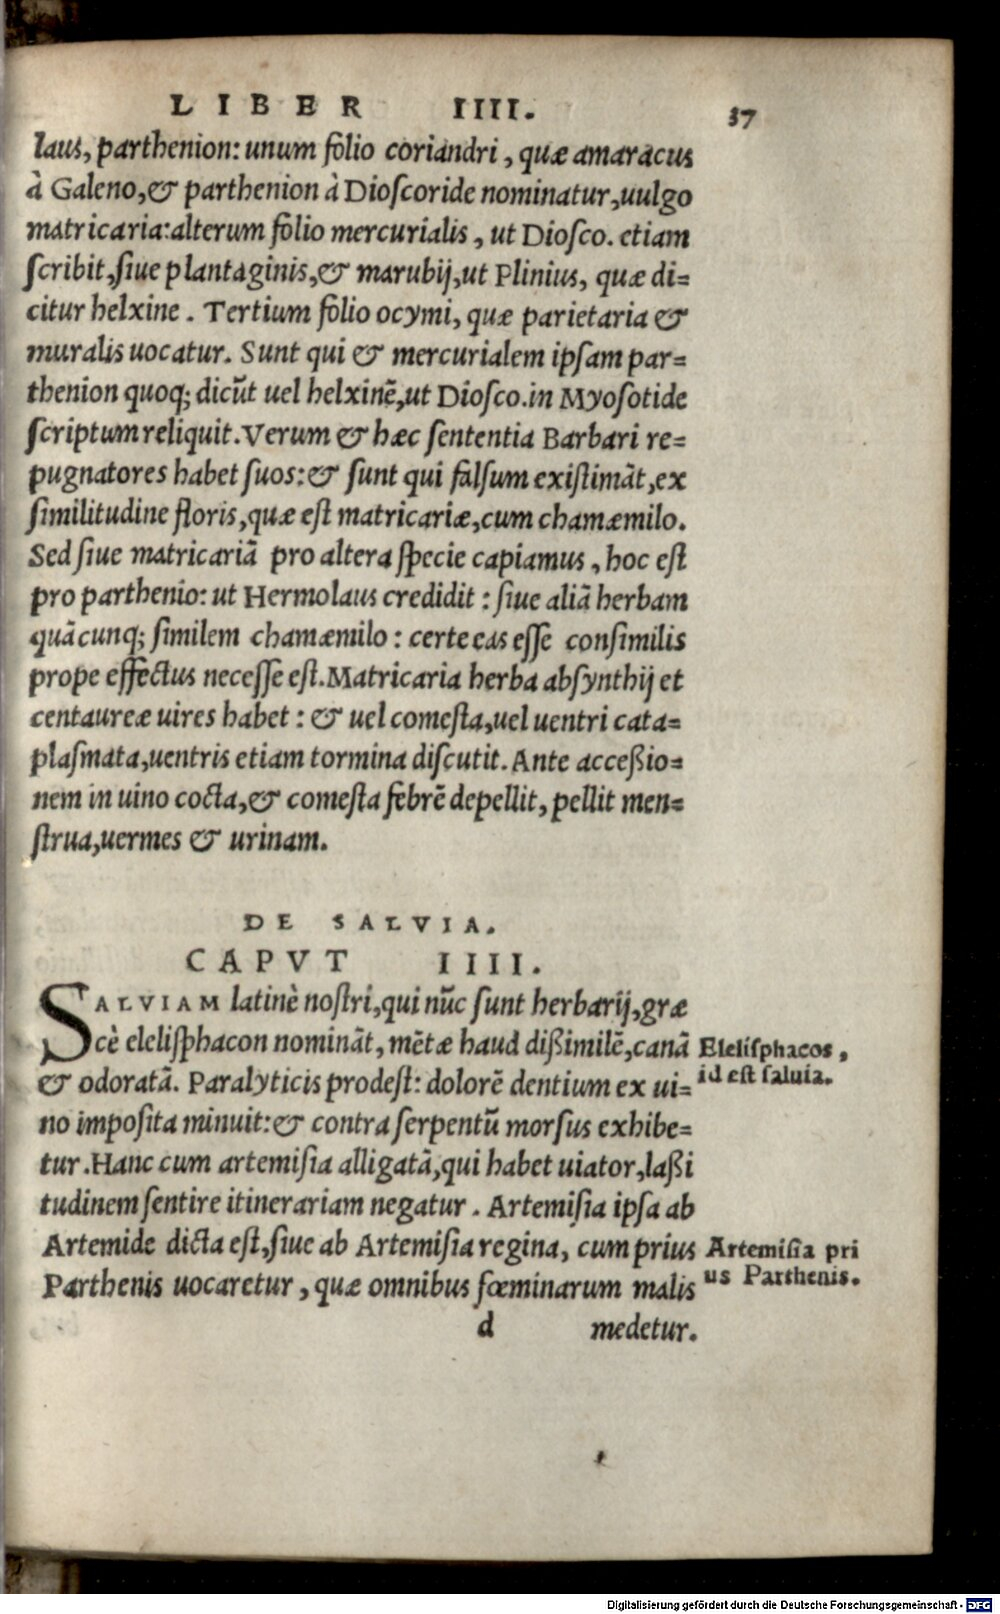 LIBER IIII. 37
laus, parthenion: unum folio coriandri, quæ amaracus
à Galeno, & parthenion à Dioſcoride nominatur, uulgo
matricaria: alterum folio mercurialis, ut Dioſco. etiam
ſcribit, ſiue plantaginis, & marubij, ut Plinius, quæ di=
citur helxine. Tertium folio ocymi, quæ parietaria &
muralis uocatur. Sunt qui & mercurialem ipſam par=
thenion quoq; dicūt uel helxinē, ut Dioſco. in Myoſotide
ſcriptum reliquit. Verum & hæc ſententia Barbari re=
pugnatores habet ſuos: & ſunt qui falſum exiſtimāt, ex
ſimilitudine floris, quæ eſt matricariæ, cum chamæmilo.
Sed ſiue matricariā pro altera ſpecie capiamus, hoc eſt
pro parthenio: ut Hermolaus credidit: ſiue aliā herbam
quācunq; ſimilem chamæmilo: certe eas eſſe conſimilis
prope effectus neceſſe eſt. Matricaria herba abſynthij et
centaureæ uires habet: & uel comeſta, uel uentri cata=
plaſmata, uentris etiam tormina diſcutit. Ante acceßio=
nem in uino cocta, & comeſta febrē depellit, pellit men=
ſtrua, uermes & urinam.
DE SALVIA.
CAPVT IIII.
SALVIAM latinè noſtri, qui nūc ſunt herbarij, græ
cè eleliſphacon nomināt, mētæ haud dißimilē, canā
& odoratā. Paralyticis prodeſt: dolorē dentium ex ui=
no impoſita minuit: & contra ſerpentū morſus exhibe=
tur. Hanc cum artemiſia alligatā, qui habet uiator, laßi
tudinem ſentire itinerariam negatur. Artemiſia ipſa ab
Artemide dicta eſt, ſiue ab Artemiſia regina, cum prius
Parthenis uocaretur, quæ omnibus fœminarum malis
d medetur.
Eleliſphacos,
id eſt ſaluia.
Artemiſia pri
us Parthenis.
Digitalisierung gefördert durch die Deutsche Forschungsgemeinschaft - DFG